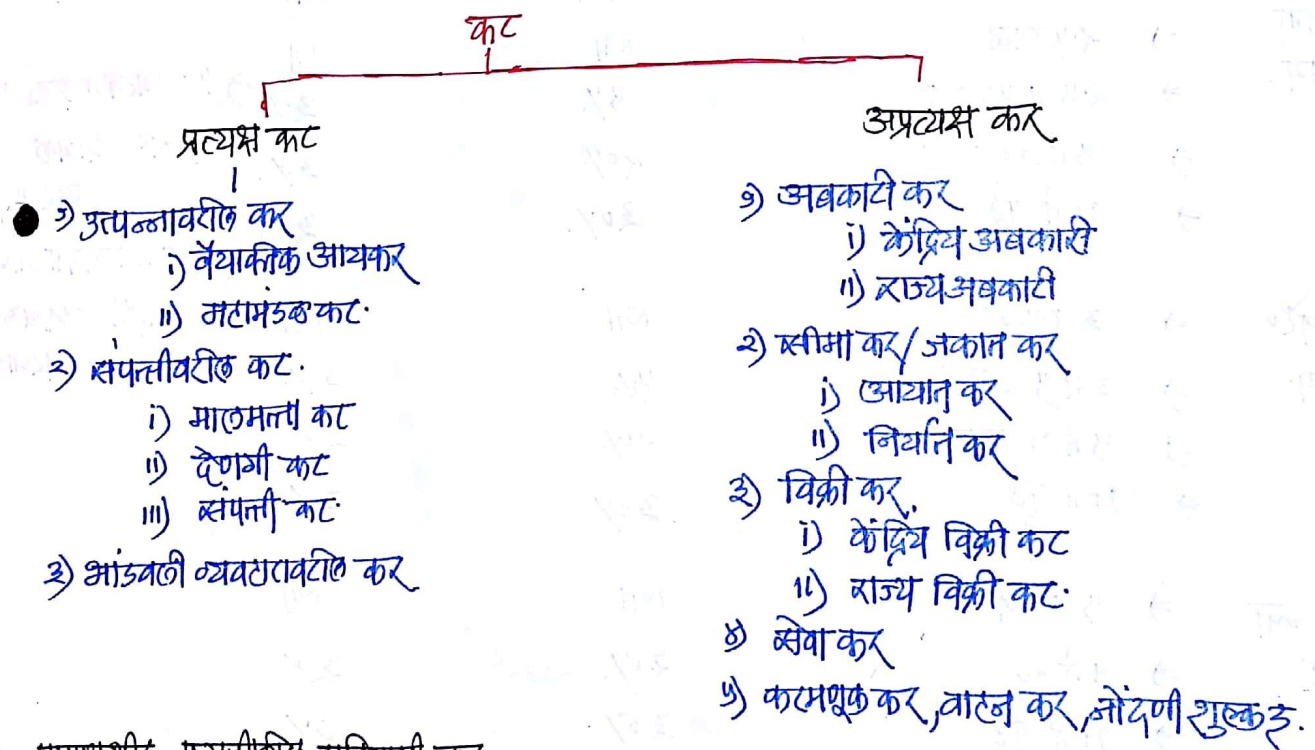 कर
प्रत्यक्ष कर
१) उत्पन्नावरील कर
i) वैयाक्तिक आयकर
ii) महामंडळ कर.
२) संपत्तीवरील कर.
i) मालमत्ता कर
ii) देणगी कर
iii) संपत्ती कर.
३) भांडवली व्यवहारावरील कर
अप्रत्यक्ष कर
१) अबकारी कर
i) केंद्रिय अबकारी
ii) राज्य अबकारी
२) सीमा कर/ जकात कर
i) आयात कर
ii) निर्यात कर
३) विक्री कर
i) केंद्रिय विक्री कर
ii) राज्य विक्री कर.
४) सेवा कर
५) करमणूक कर, वाहन कर, नोंदणी शुल्क इ.